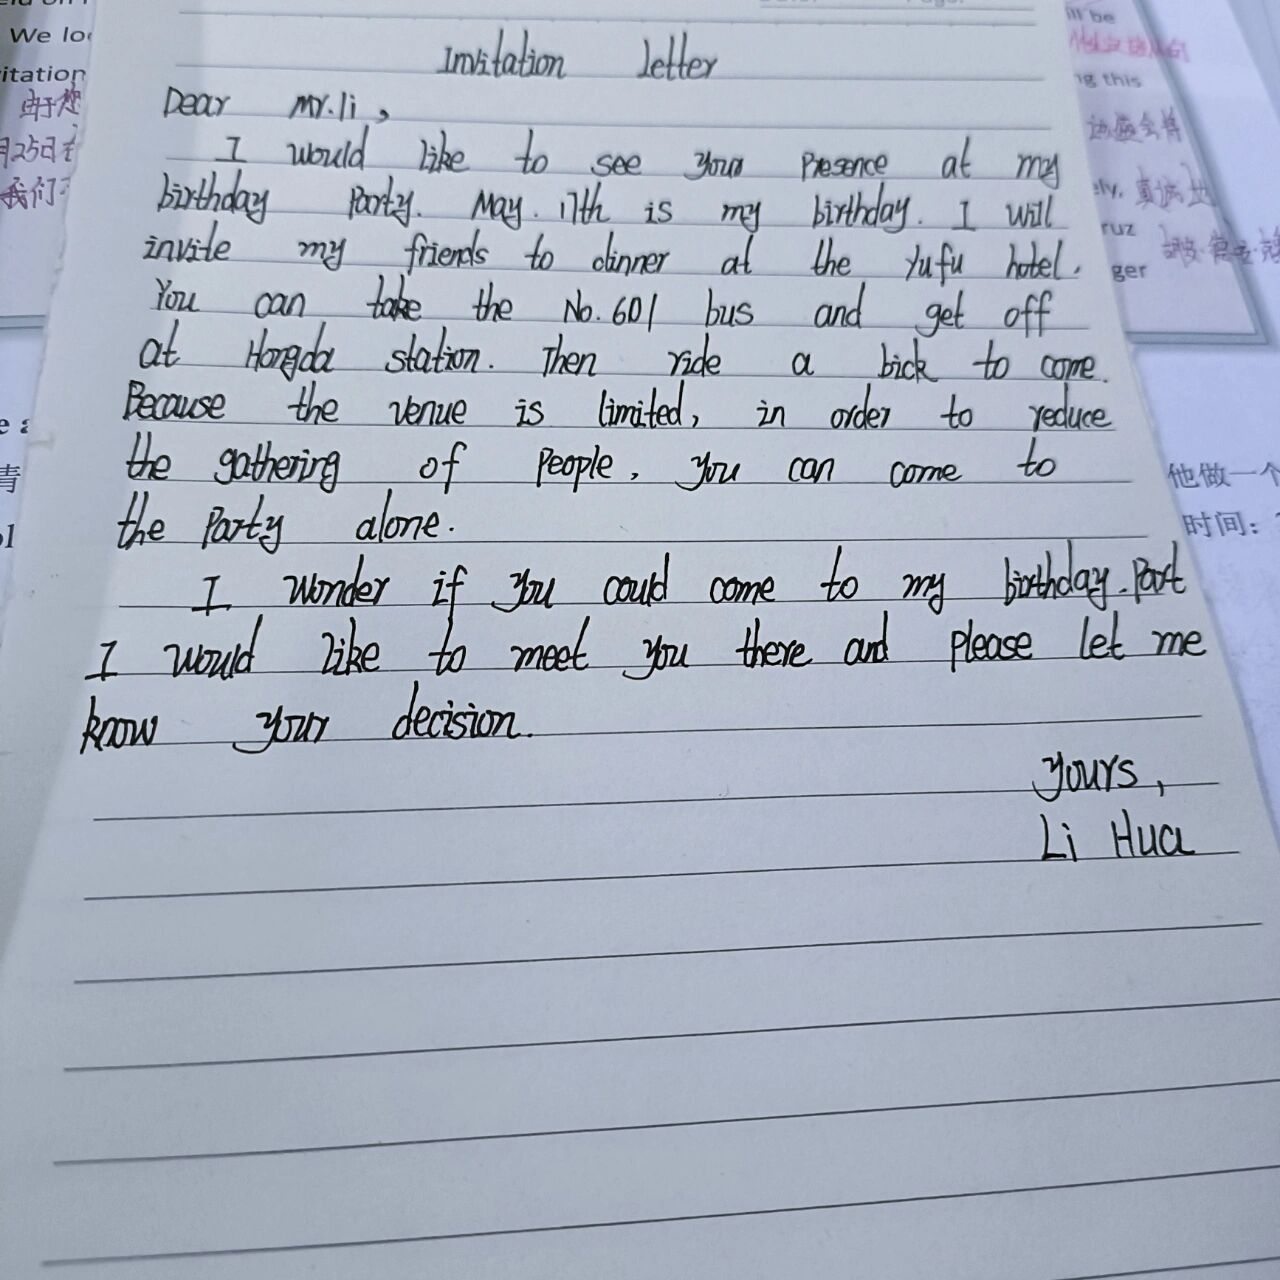 We lo
itation
由于您
月25日
我们
Invitation letter
Dear Mr.li,
I would like to see your Presence at my
birthday Party. May. 17th is my birthday. I will
invite my friends to dinner at the Yufu hotel.
You can take the No.601 bus and get off
at Hongda station. Then ride a bick to come.
Because the venue is limited, in order to reduce
the gathering of People, you can come to
the Party alone.
I wonder if you could come to my birthday.Part
I would like to meet you there and please let me
know your decision.
yours,
Li Hua
ill be
ng this
ely, 真诚地
ruz
ger
他做一个
时间:
青